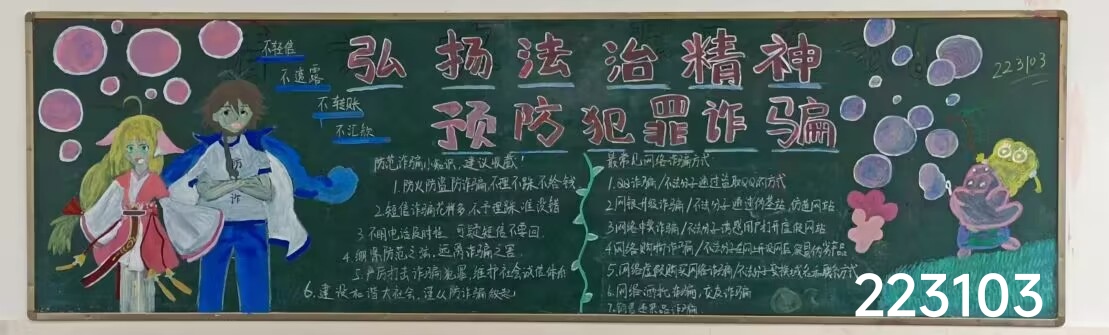 弘扬法治精神
预防犯罪诈骗
223103
不轻信
不透露
不转账
不汇款
防诈
防范诈骗小知识，建议收藏！
1.防火防盗防诈骗，不理不睬不给钱
2.短信诈骗花样多 不予理睬准没错
3.不明电话及时挂，可疑短信不要回
4.绷紧防范之弦，远离诈骗之害
5.严厉打击诈骗犯罪，维护社会诚信体系
6.建设和谐大社会，谨从防诈骗做起！
最常见网络诈骗方式
1.QQ诈骗/不法分子通过盗取QQ的方式
2.网银升级诈骗/不法分子通过伪基站，伪造网站
3.网络中奖诈骗/不法分子诱惑用户打开虚假网站
4.网络购物诈骗/不法分子在网上开设网店
5.网络虚假购买网络诈骗/不法分子
6.网络酒托诈骗，交友诈骗
7.诈骗
223103